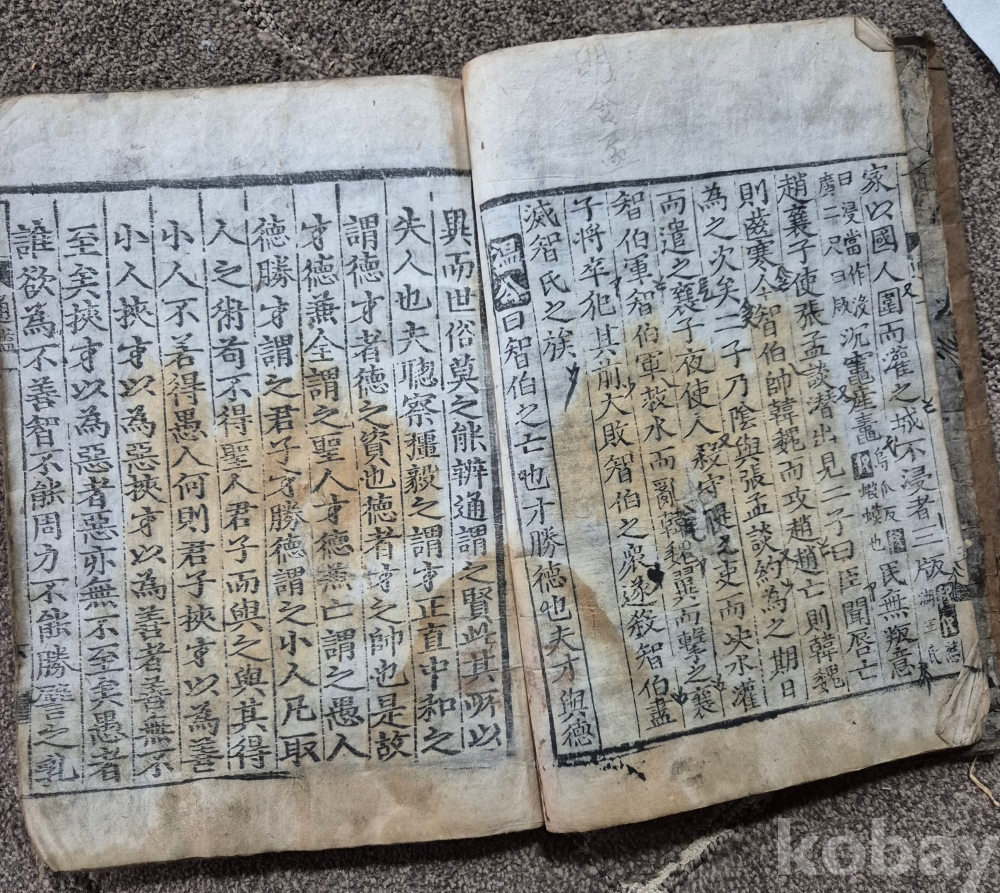 家以國人圍而灌之城不浸者三版
曰浸當作沒
廣二尺曰版
沉竈産鼃
烏瓜反
蝦蟆也
民無叛意
趙襄子使張孟談潜出見二子曰臣聞唇亡
則齒寒今智伯帥韓魏而攻趙趙亡則韓魏
為之次矣二子乃陰與張孟談約為之期日
而遣之襄子夜使人殺守隄之吏而决水灌
智伯軍智伯軍救水而亂韓魏翼而擊之襄
子將卒犯其前大敗智伯之衆遂殺智伯盡
滅智氏之族
温公曰智伯之亡也才勝德也夫才與德
異而世俗莫之能辨通謂之賢此其所以
失人也夫聰察彊毅之謂才正直中和之
謂德才者德之資也德者才之帥也是故
才德兼全謂之聖人才德兼亡謂之愚人
德勝才謂之君子才勝德謂之小人凡取
人之術苟不得聖人君子而與之與其得
小人不若得愚人何則君子挾才以為善
小人挾才以為惡挾才以為善者善無不
至矣挾才以為惡者惡亦無不至矣愚者
誰欲為不善智不能周力不能勝譬之乳
kobay